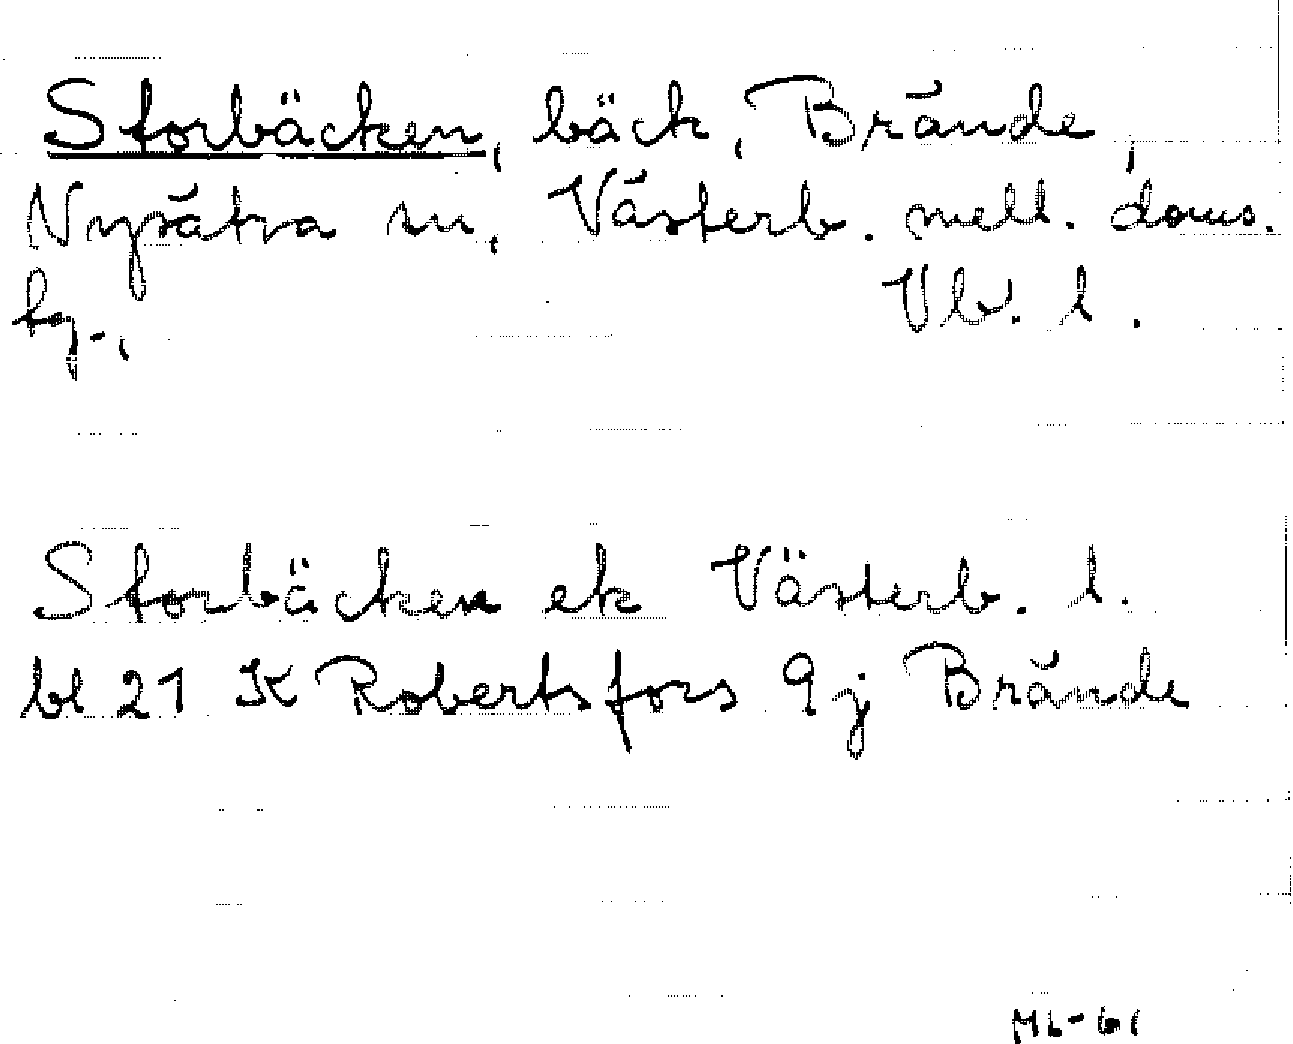 Storbäcken, bäck, Brände,
Nysätra sn, Västerb. mell. doms.
fg., Vb. l.
Storbäcken ek Västerb. l.
bl 21 K Robertsfors 9j Brände
ML-61